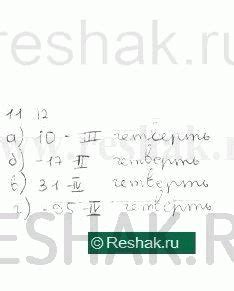 reshak.ru
11 12
а) 10 - III четверть
б) -17 - II четверть
в) 31 - IV четверть
г) -95 - IV четверть
Reshak.ru